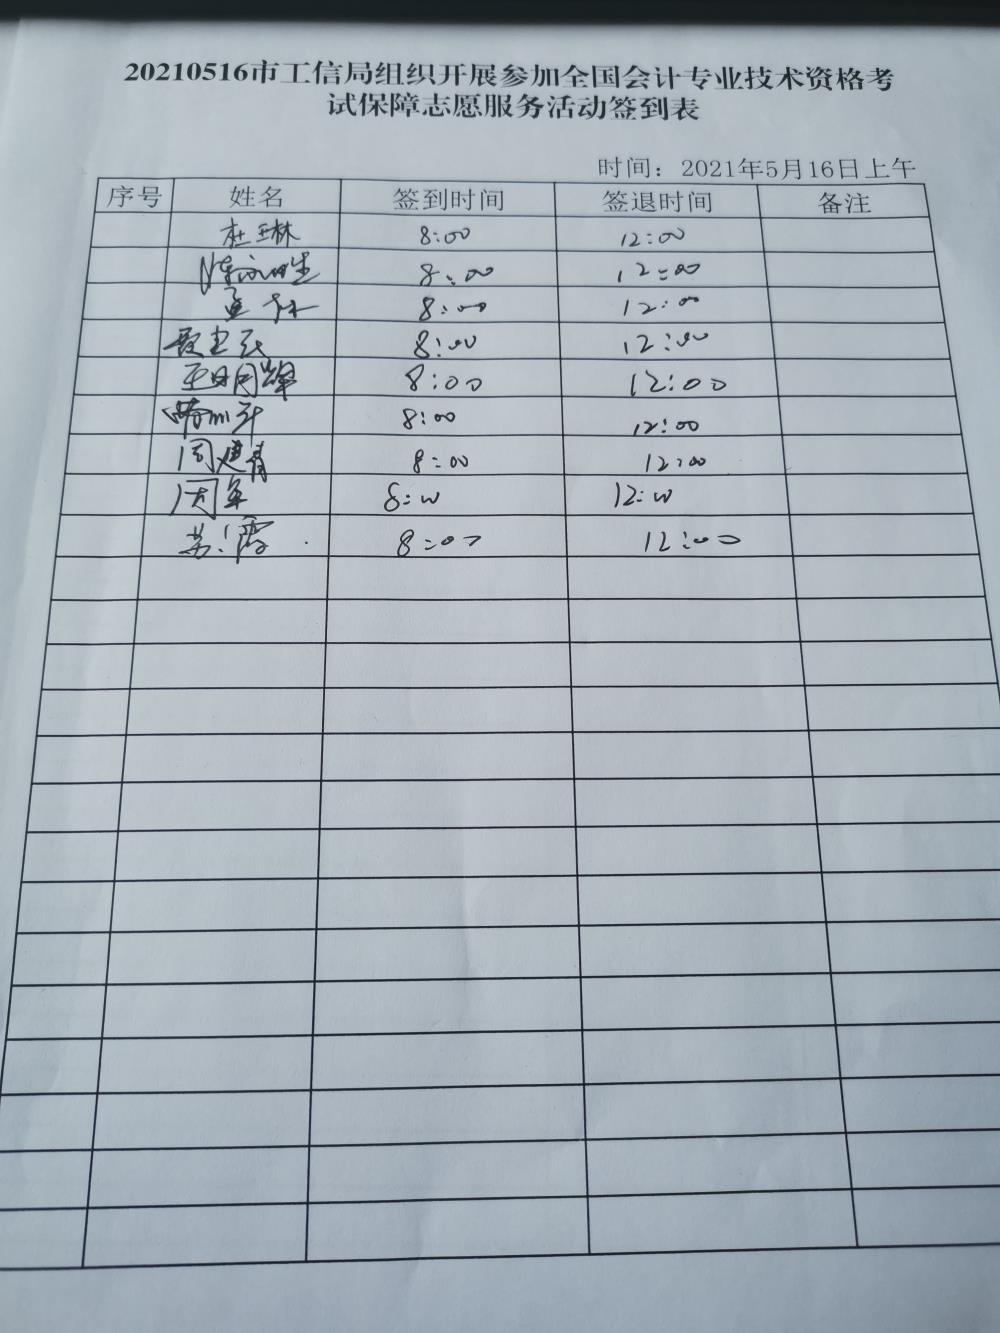 20210516市工信局组织开展参加全国会计专业技术资格考
试保障志愿服务活动签到表
时间：2021年5月16日上午
序号 姓名 签到时间 签退时间 备注
杜琳 8:00 12:00
8:00 12:00
8:00 12:00
8:00 12:00
8:00 12:00
8:00 12:00
周建青 8:00 12:00
周军 8:00 12:00
苏霞 8:00 12:00